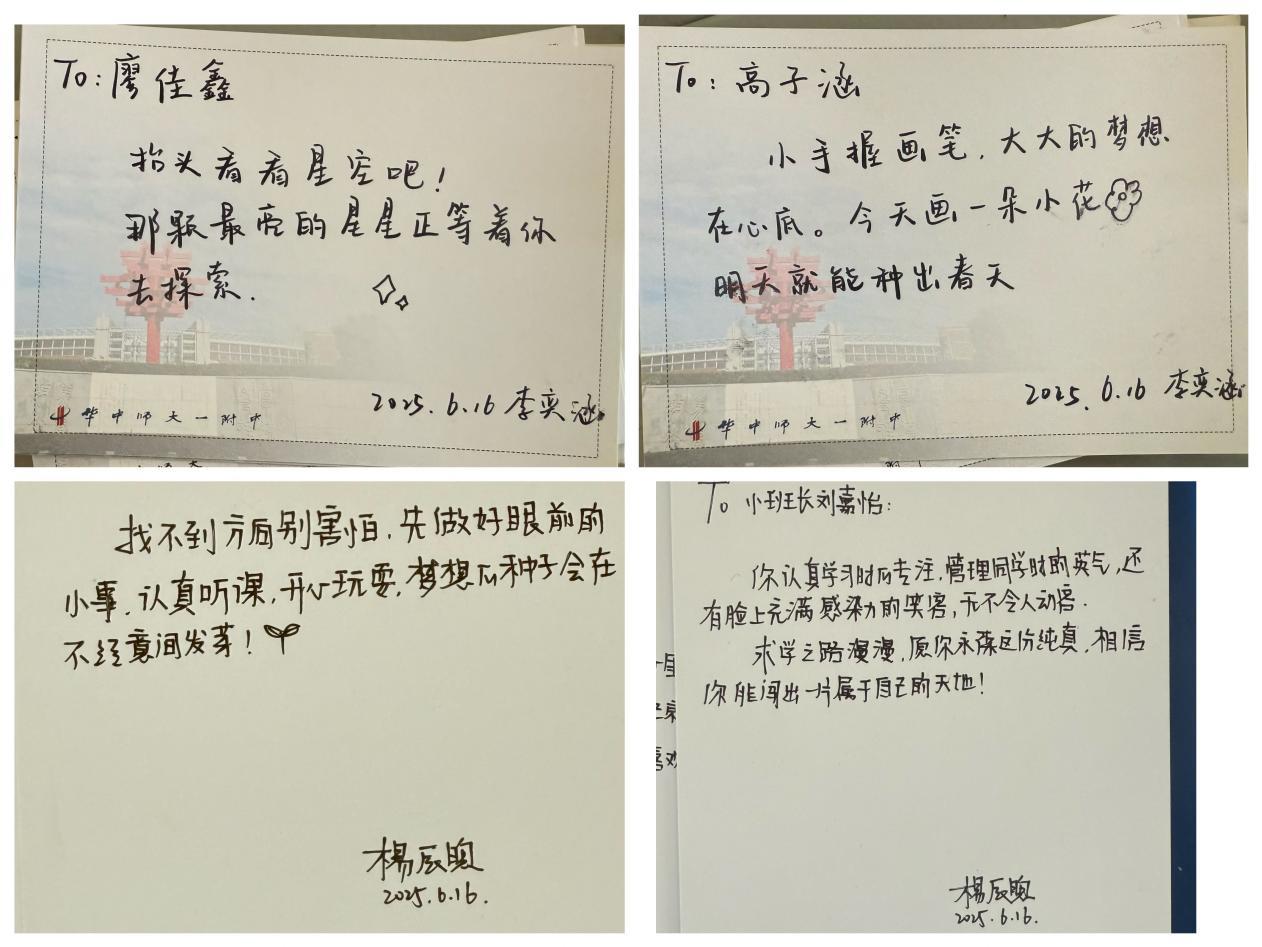 To: 廖佳鑫
抬头看看星空吧!
那颗最亮的星星正等着你
去探索.
2025.6.16 李奕涵
华中师大一附中
To: 高子涵
小手握画笔, 大大的梦想
在心底。今天画一朵小花
明天就能种出春天
2025.6.16 李奕涵
华中师大一附中
找不到方向别害怕, 先做好眼前的
小事, 认真听课, 开心玩耍, 梦想的种子会在
不经意间发芽!
楊辰
2025.6.16.
To 小班长刘嘉怡:
你认真学习时的专注, 管理同学时的英气, 还
有脸上充满感染力的笑容, 无不令人动容.
求学之路漫漫, 愿你永葆这份纯真, 相信
你能闯出一片属于自己的天地!
楊辰
2025.6.16.